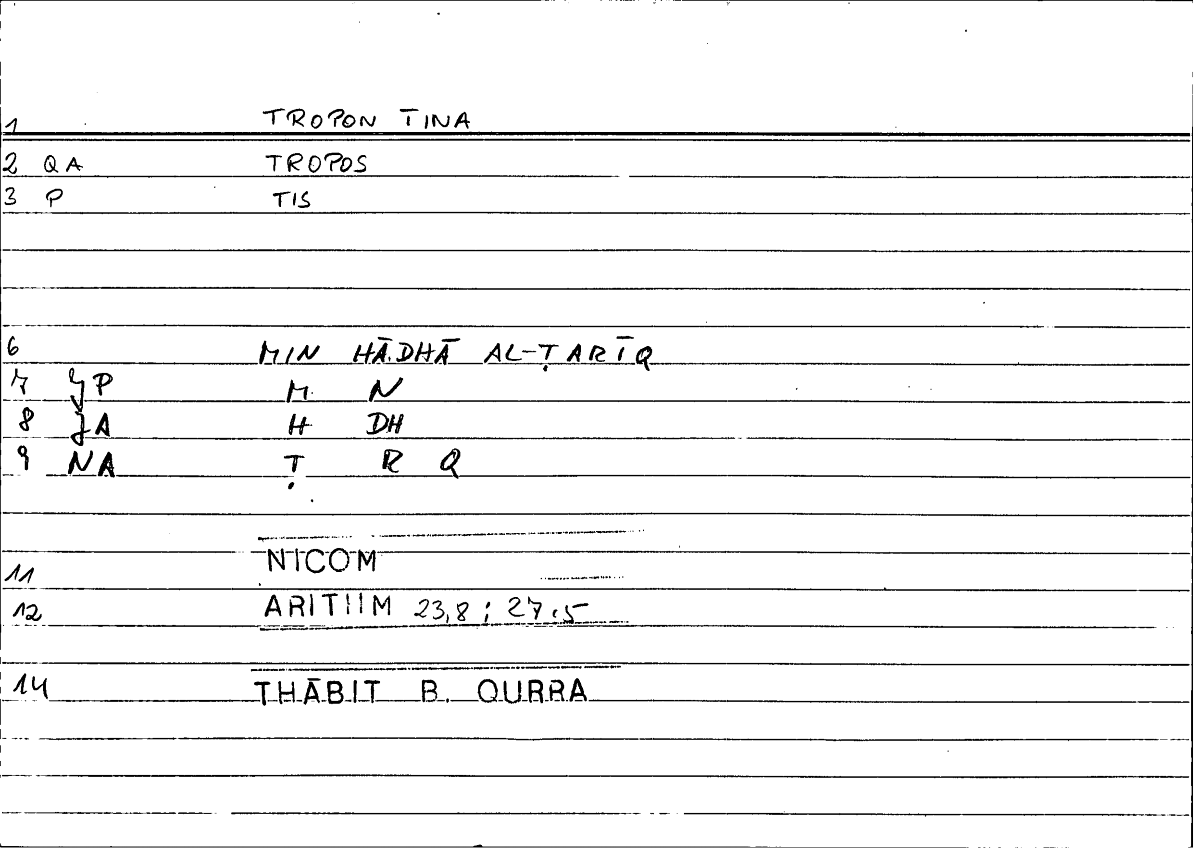 1 TROPON TINA
2 QA TROPOS
3 P TIS
6 MIN HĀDHĀ AL-ṬARĪQ
7 JP M N
8 JA H DH
9 NA Ṭ R Q
11 NICOM
12 ARITIIM 23,8 ; 27.5
14 THĀBIT B. QURRA